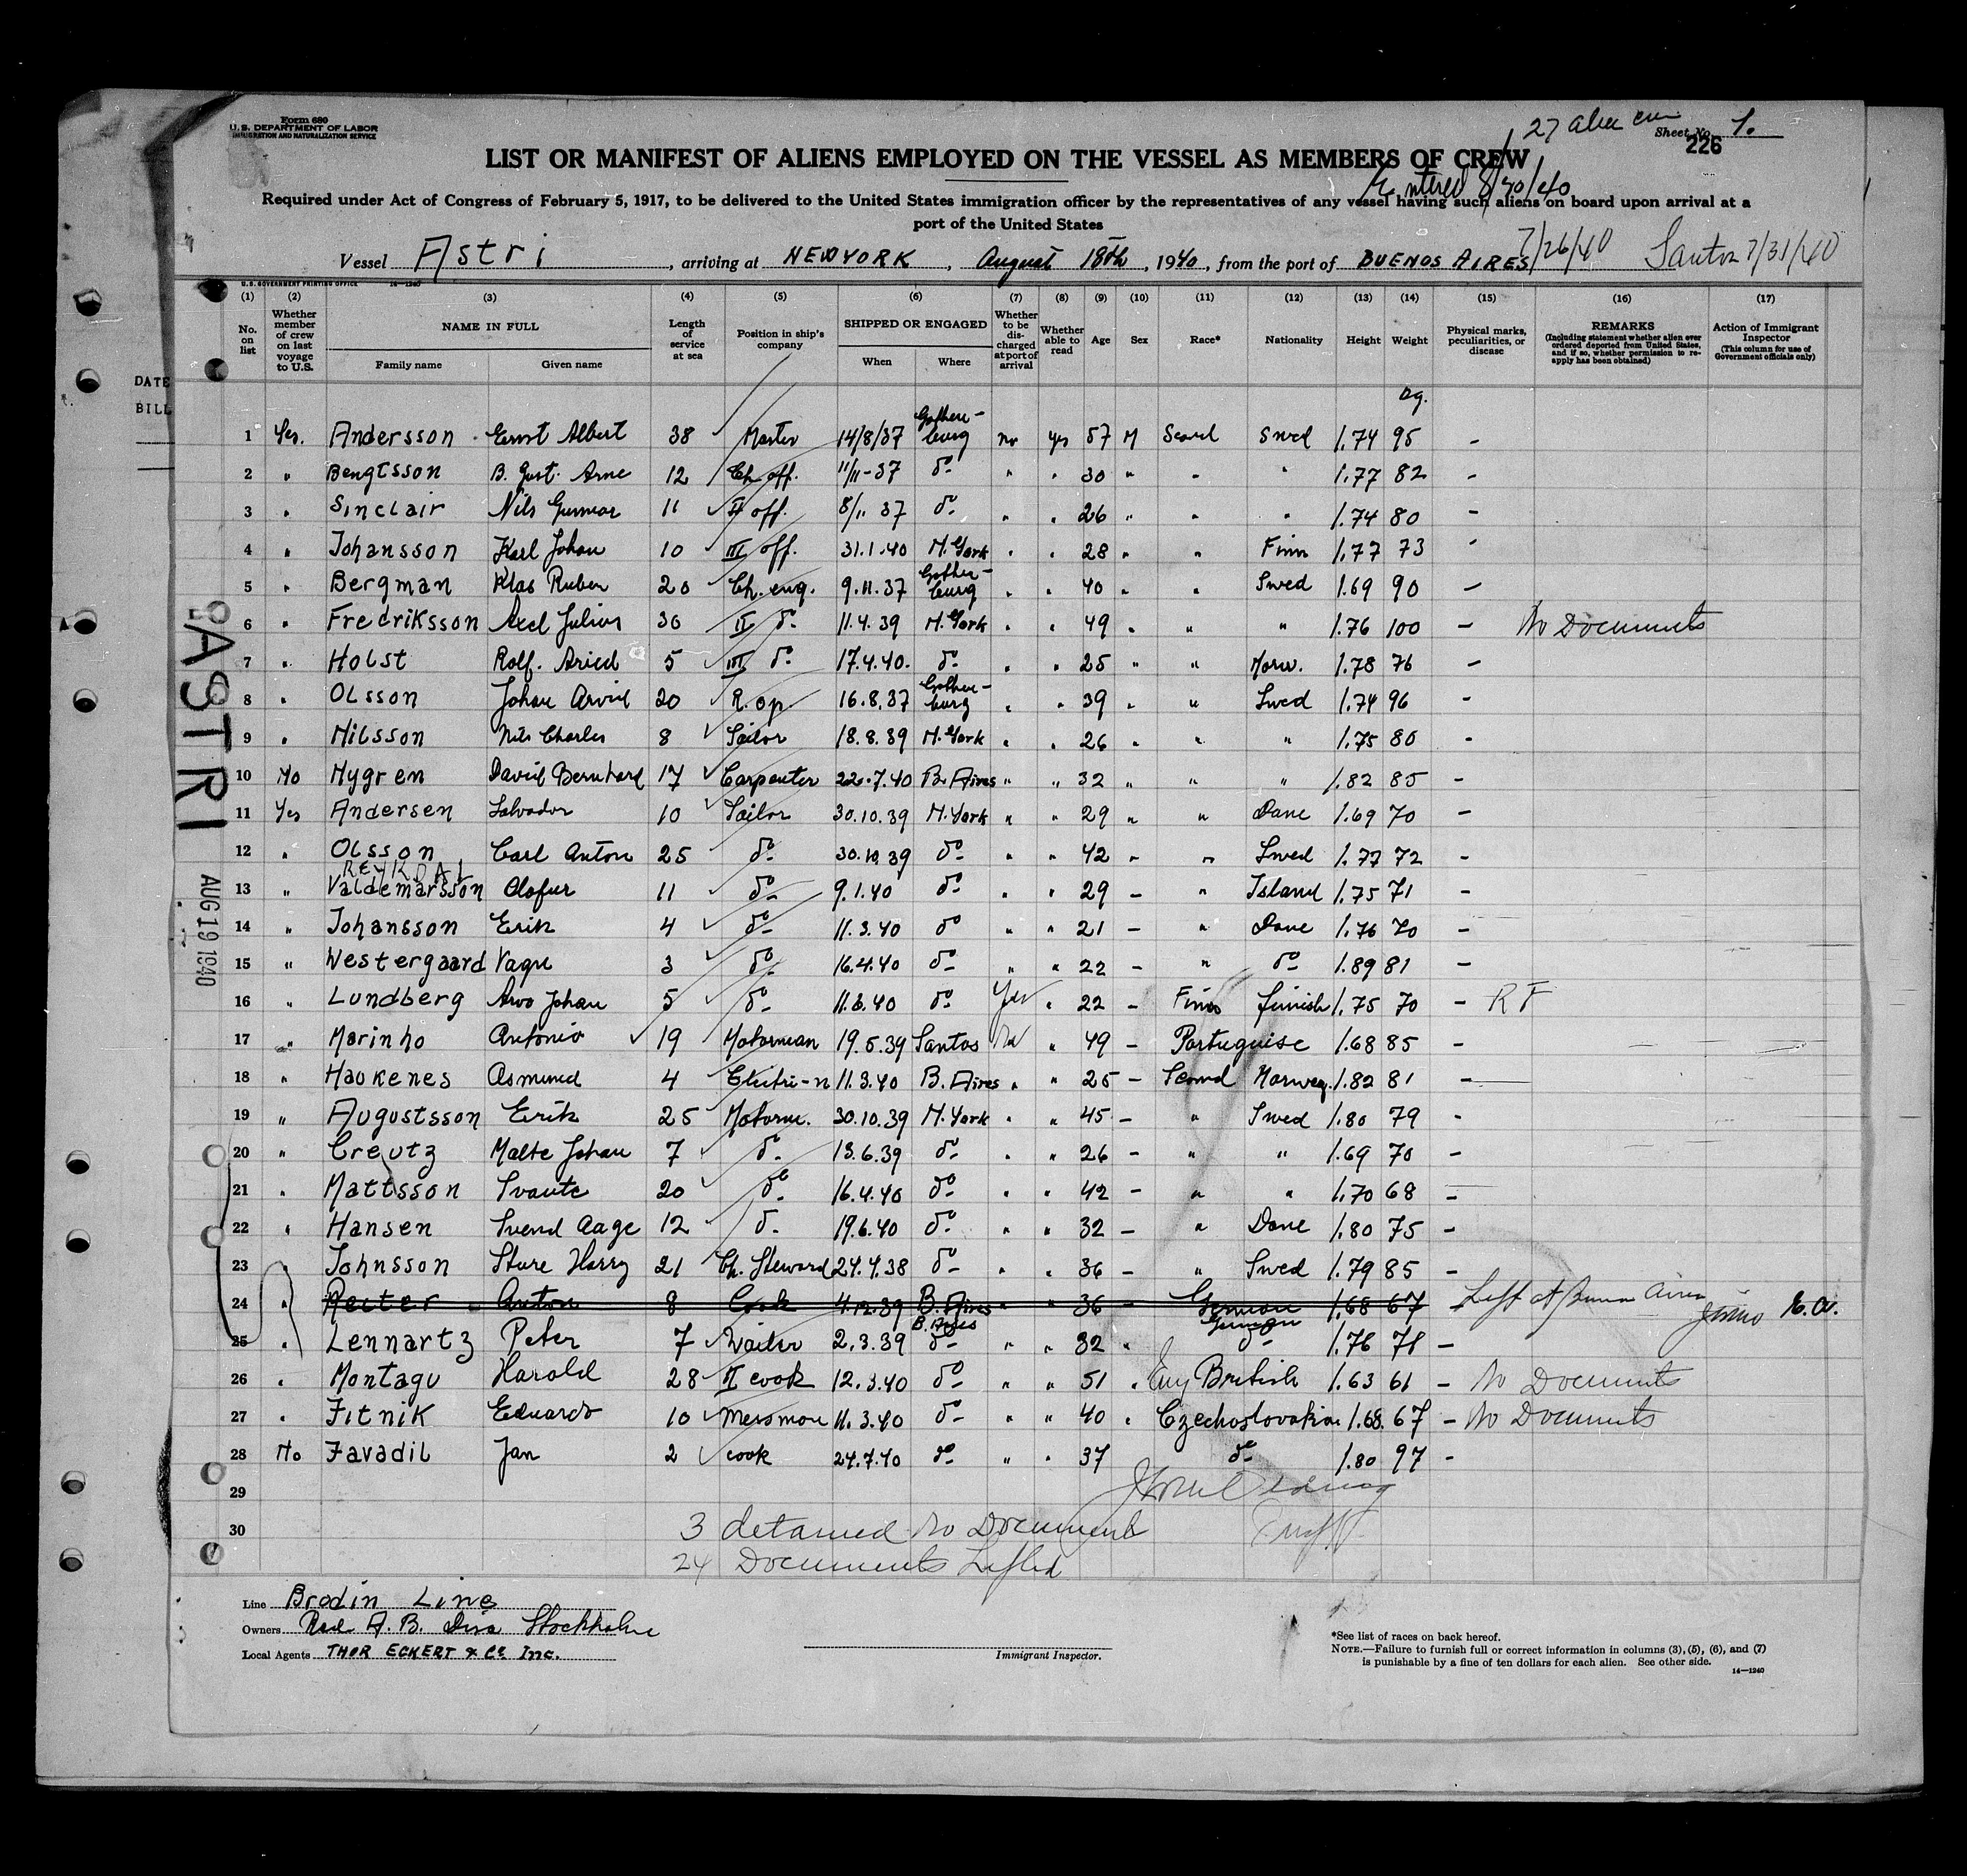 Form 680
U. S. DEPARTMENT OF LABOR
IMMIGRATION AND NATURALIZATION SERVICE
27 alien crew
Sheet No. 1.
226
LIST OR MANIFEST OF ALIENS EMPLOYED ON THE VESSEL AS MEMBERS OF CREW
Entered 8/20/40
Required under Act of Congress of February 5, 1917, to be delivered to the United States immigration officer by the representatives of any vessel having such aliens on board upon arrival at a
port of the United States
Vessel Astri, arriving at NEW YORK, August 18th, 1940, from the port of BUENOS AIRES 7/26/40 Santos 7/31/40
U. S. GOVERNMENT PRINTING OFFICE 14—1240
(1) (2) (3) (4) (5) (6) (7) (8) (9) (10) (11) (12) (13) (14) (15) (16) (17)
No. on list
Whether member of crew on last voyage to U.S.
NAME IN FULL
Family name
Given name
Length of service at sea
Position in ship's company
SHIPPED OR ENGAGED
When
Where
Whether to be discharged at port of arrival
Whether able to read
Age
Sex
Race*
Nationality
Height
Weight
Physical marks, peculiarities, or disease
REMARKS
(Including statement whether alien ever ordered deported from United States, and if so, whether permission to reapply has been obtained)
Action of Immigrant Inspector
(This column for use of Government officials only)
DATE
BILL
1 Yes. Andersson Ernst Albert 38 Master 14/8/37 Gothenburg no yes 57 M Scand Swed 1.74 95 -
2 " Bengtsson B. Gust. Arne 12 Ch. off. 11/11-37 do " " 30 " " " 1.77 82 -
3 " Sinclair Nils Gunnar 11 II off. 8/11 37 do " " 26 " " " 1.74 80 -
4 " Johansson Karl Johan 10 III off. 31.1.40 N.York " " 28 " " Finn 1.77 73 -
5 " Bergman Klas Ruben 20 Ch. eng. 9.11.37 Gothenburg " " 40 " " Swed 1.69 90 -
6 " Fredriksson Axel Julius 30 II do 11.4.39 N.York " " 49 " " " 1.76 100 - No Documents
7 " Holst Rolf. 5 III do 17.4.40. do " " 25 " " Norw. 1.78 76 -
8 " Olsson Johan Arvid 20 R.op. 16.8.37 Gothenburg " " 39 " " Swed 1.74 96 -
9 " Nilsson Nils Charles 8 Sailor 18.8.39 N.York " " 26 " " " 1.75 80 -
10 No Nygren David Bernhard 17 Carpenter 22.7.40 B. Aires " " 32 " " " 1.82 85 -
11 Yes Andersen Salvador 10 Sailor 30.10.39 N.York " " 29 " " Dane 1.69 70 -
12 " Olsson Carl Anton 25 do 30.10.39 do " " 42 - " Swed 1.77 72 -
REYKDAL
13 " Valdemarsson Olafur 11 do 9.1.40 do " " 29 - " Island 1.75 71 -
14 " Johansson Erik 4 do 11.3.40 do " " 21 - " Dane 1.76 70 -
15 " Westergaard Vagn 3 do 16.4.40 do " " 22 - " do 1.89 81 -
16 " Lundberg Arvo Johan 5 do do Yes " 22 - Finn finnish 1.75 70 - R F
17 " Marinho Antonio 19 Motorman 19.5.39 Santos No " 49 - Portuguise 1.68 85 -
18 " Haokenes Asmund 4 Electri-n 11.3.40 B. Aires " " 25 - Scand Norweg. 1.82 81 -
19 " Augustsson Erik 25 Motorm. 30.10.39 N.York " " 45 - " Swed 1.80 79 -
20 " Creutz Malte Johan 7 do 13.6.39 do " " 26 - " " 1.69 70 -
21 " Mattsson Svante 20 do 16.4.40 do " " 42 - " " 1.70 68 -
22 " Hansen Svend Aage 12 do 19.6.40 do " " 32 - " Dane 1.80 75 -
23 " Johnsson Sture Harry 21 Ch. Steward 24.4.38 do " " 36 - " Swed 1.79 85 -
24 " Reiter Anton 8 Cook 4.12.39 B. Aires " " 36 - German 1.68 67 - Left at Buenos Aires
25 " Lennartz Peter 7 Waiter 2.3.39 B. Aires do " " 32 " German do 1.76 78 -
26 " Montagu Harold 28 II cook 12.3.40 do " " 51 " Eng British 1.63 61 - No Documents
27 " Fitnik Eduardo 10 Messman 11.3.40 do " " 40 " Czechoslovakian 1.68 67 - No Documents
28 No Favadil Jan 2 cook 24.7.40 do " " 37 do 1.80 97 -
29
30
3 detained No Documents
24 Documents Lifted
ASTRI
AUG 19 1940
Line Brodin Line
Owners Red. A.B. Disa Stockholm
Local Agents THOR ECKERT & Co. Inc.
Immigrant Inspector.
*See list of races on back hereof.
NOTE.—Failure to furnish full or correct information in columns (3), (5), (6), and (7)
is punishable by a fine of ten dollars for each alien. See other side.
14—1240